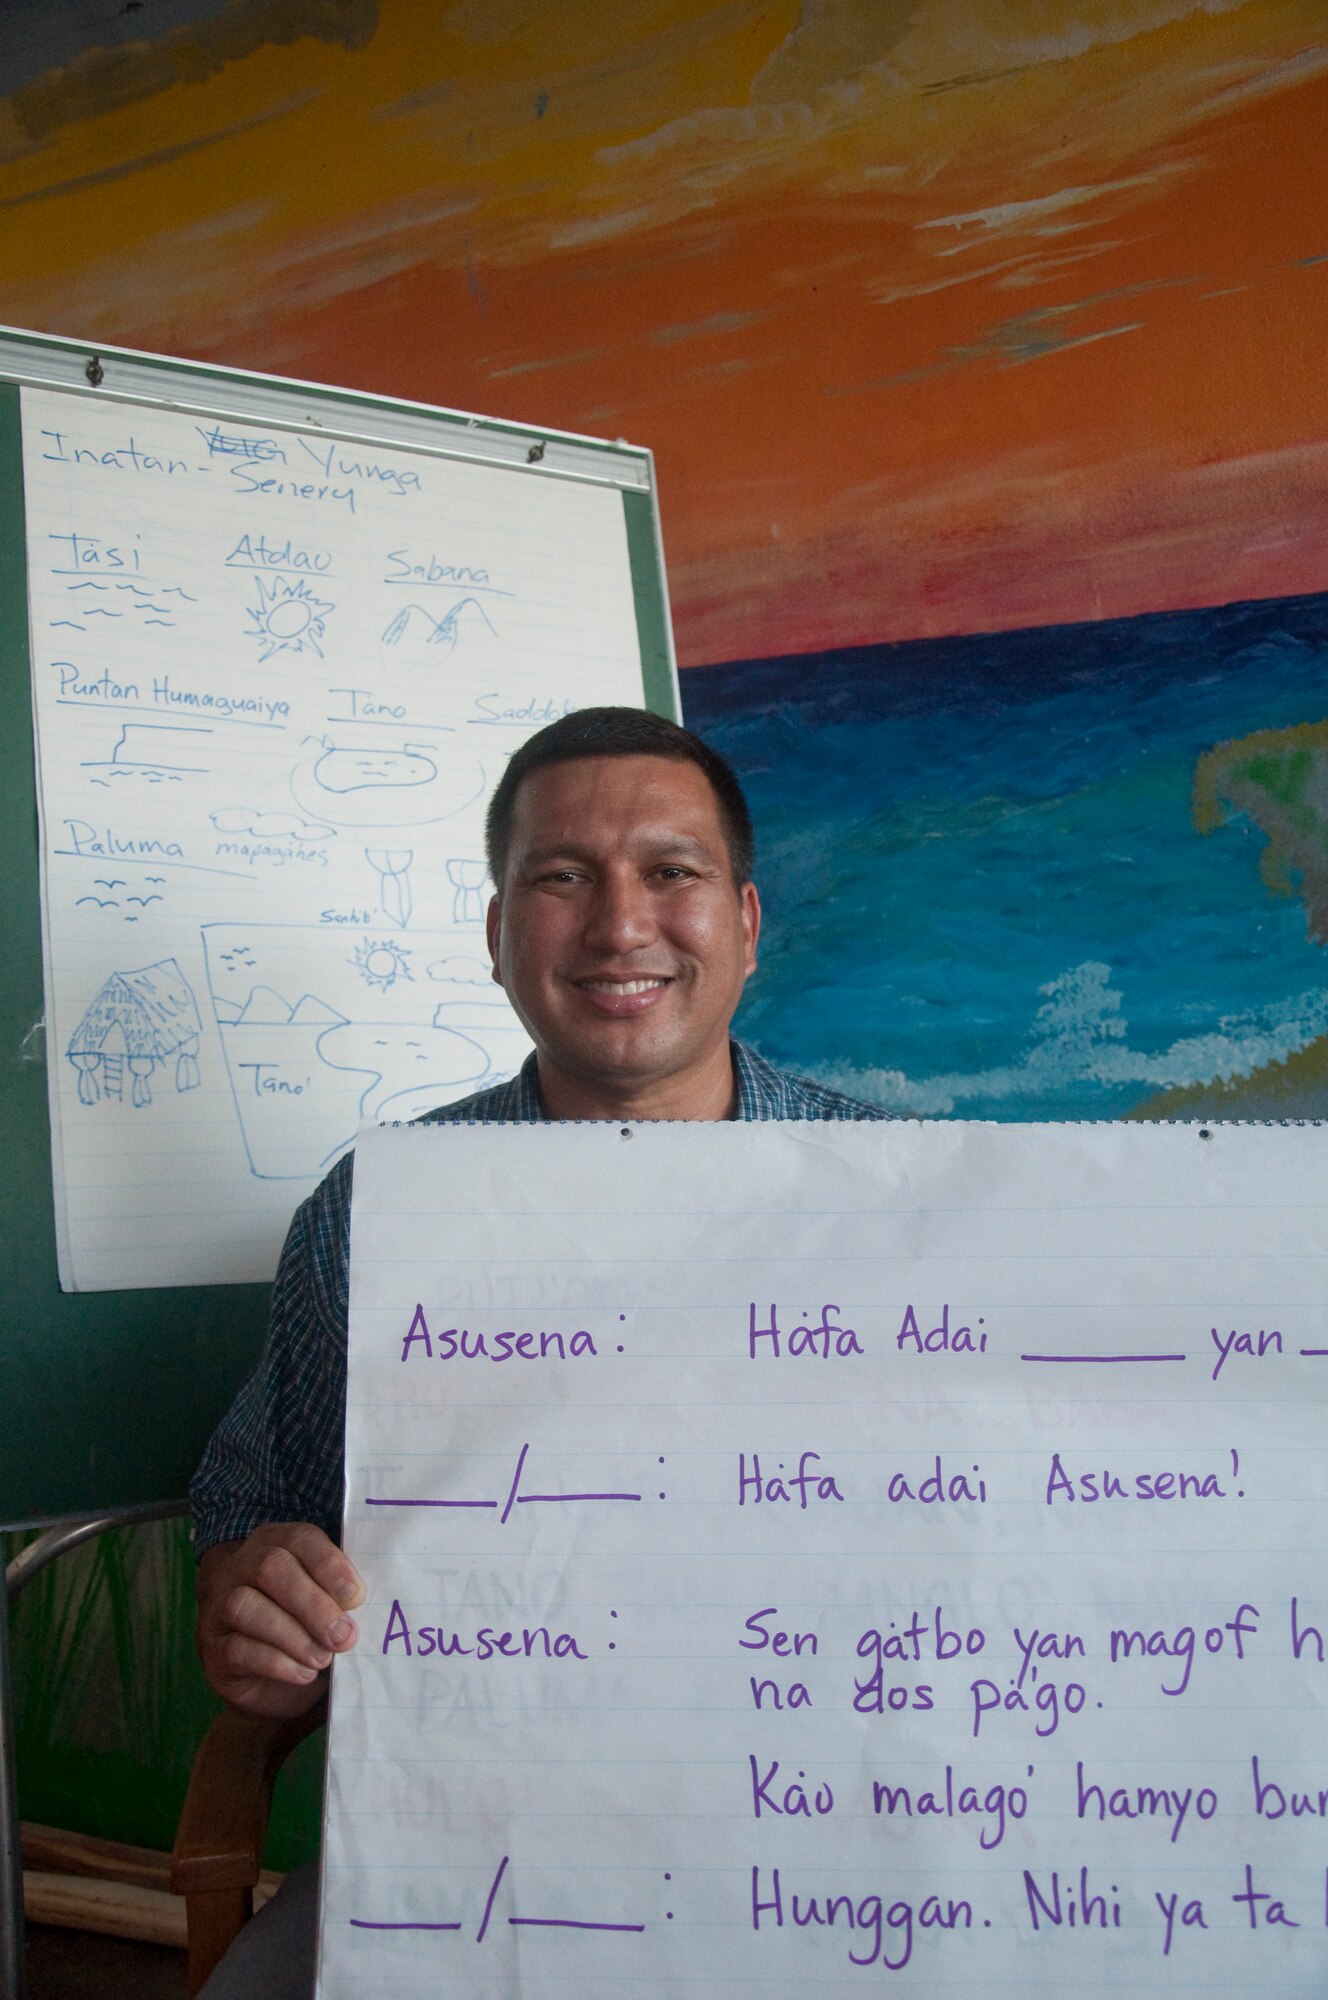 Inatan- Yunga
Senery
Tåsi Atdau Sabana
Puntan Humaguaiya Tano
Paluma mapagåhes
Tano'
Asusena: Håfa Adai ______ yan __
____/____: Håfa adai Asusena!
Asusena: Sen gåtbo yan magof h
na dos på'go.
Kåo malago' hamyo bu
___/____: Hunggan. Nihi ya ta
PALU
TANO